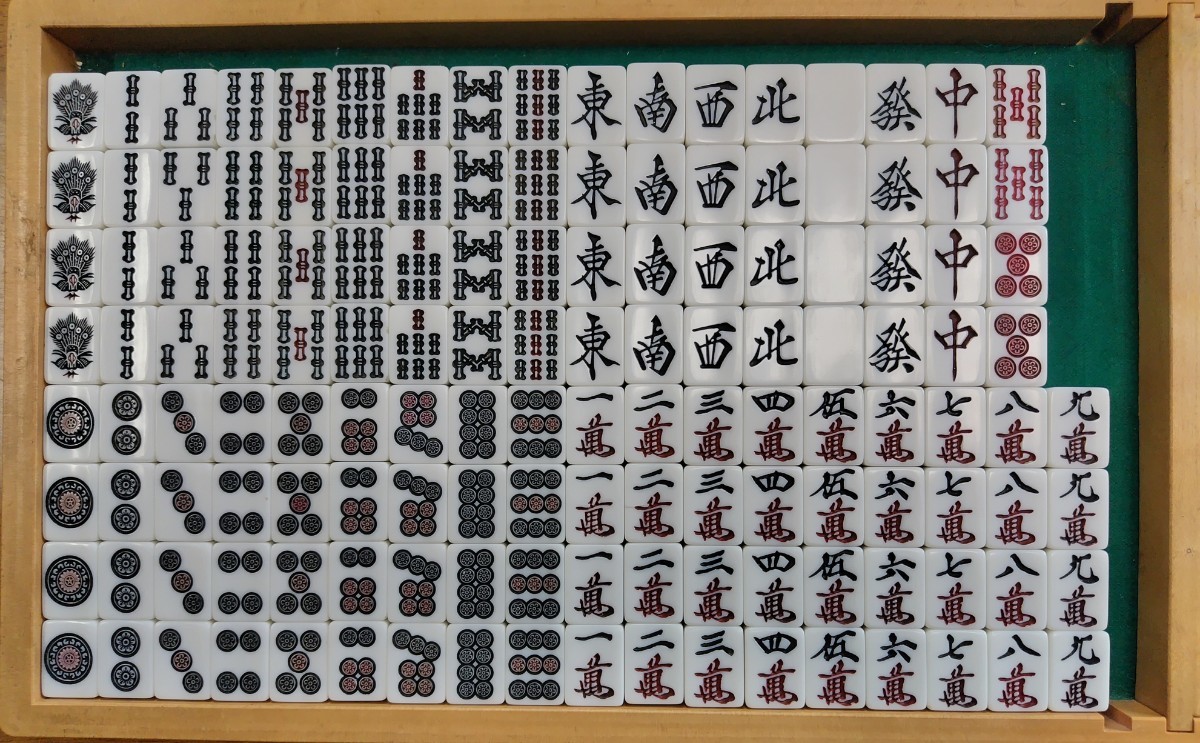 東南西北發中
東南西北發中
東南西北發中
東南西北發中
一萬二萬三萬四萬伍萬六萬七萬八萬九萬
一萬二萬三萬四萬伍萬六萬七萬八萬九萬
一萬二萬三萬四萬伍萬六萬七萬八萬九萬
一萬二萬三萬四萬伍萬六萬七萬八萬九萬